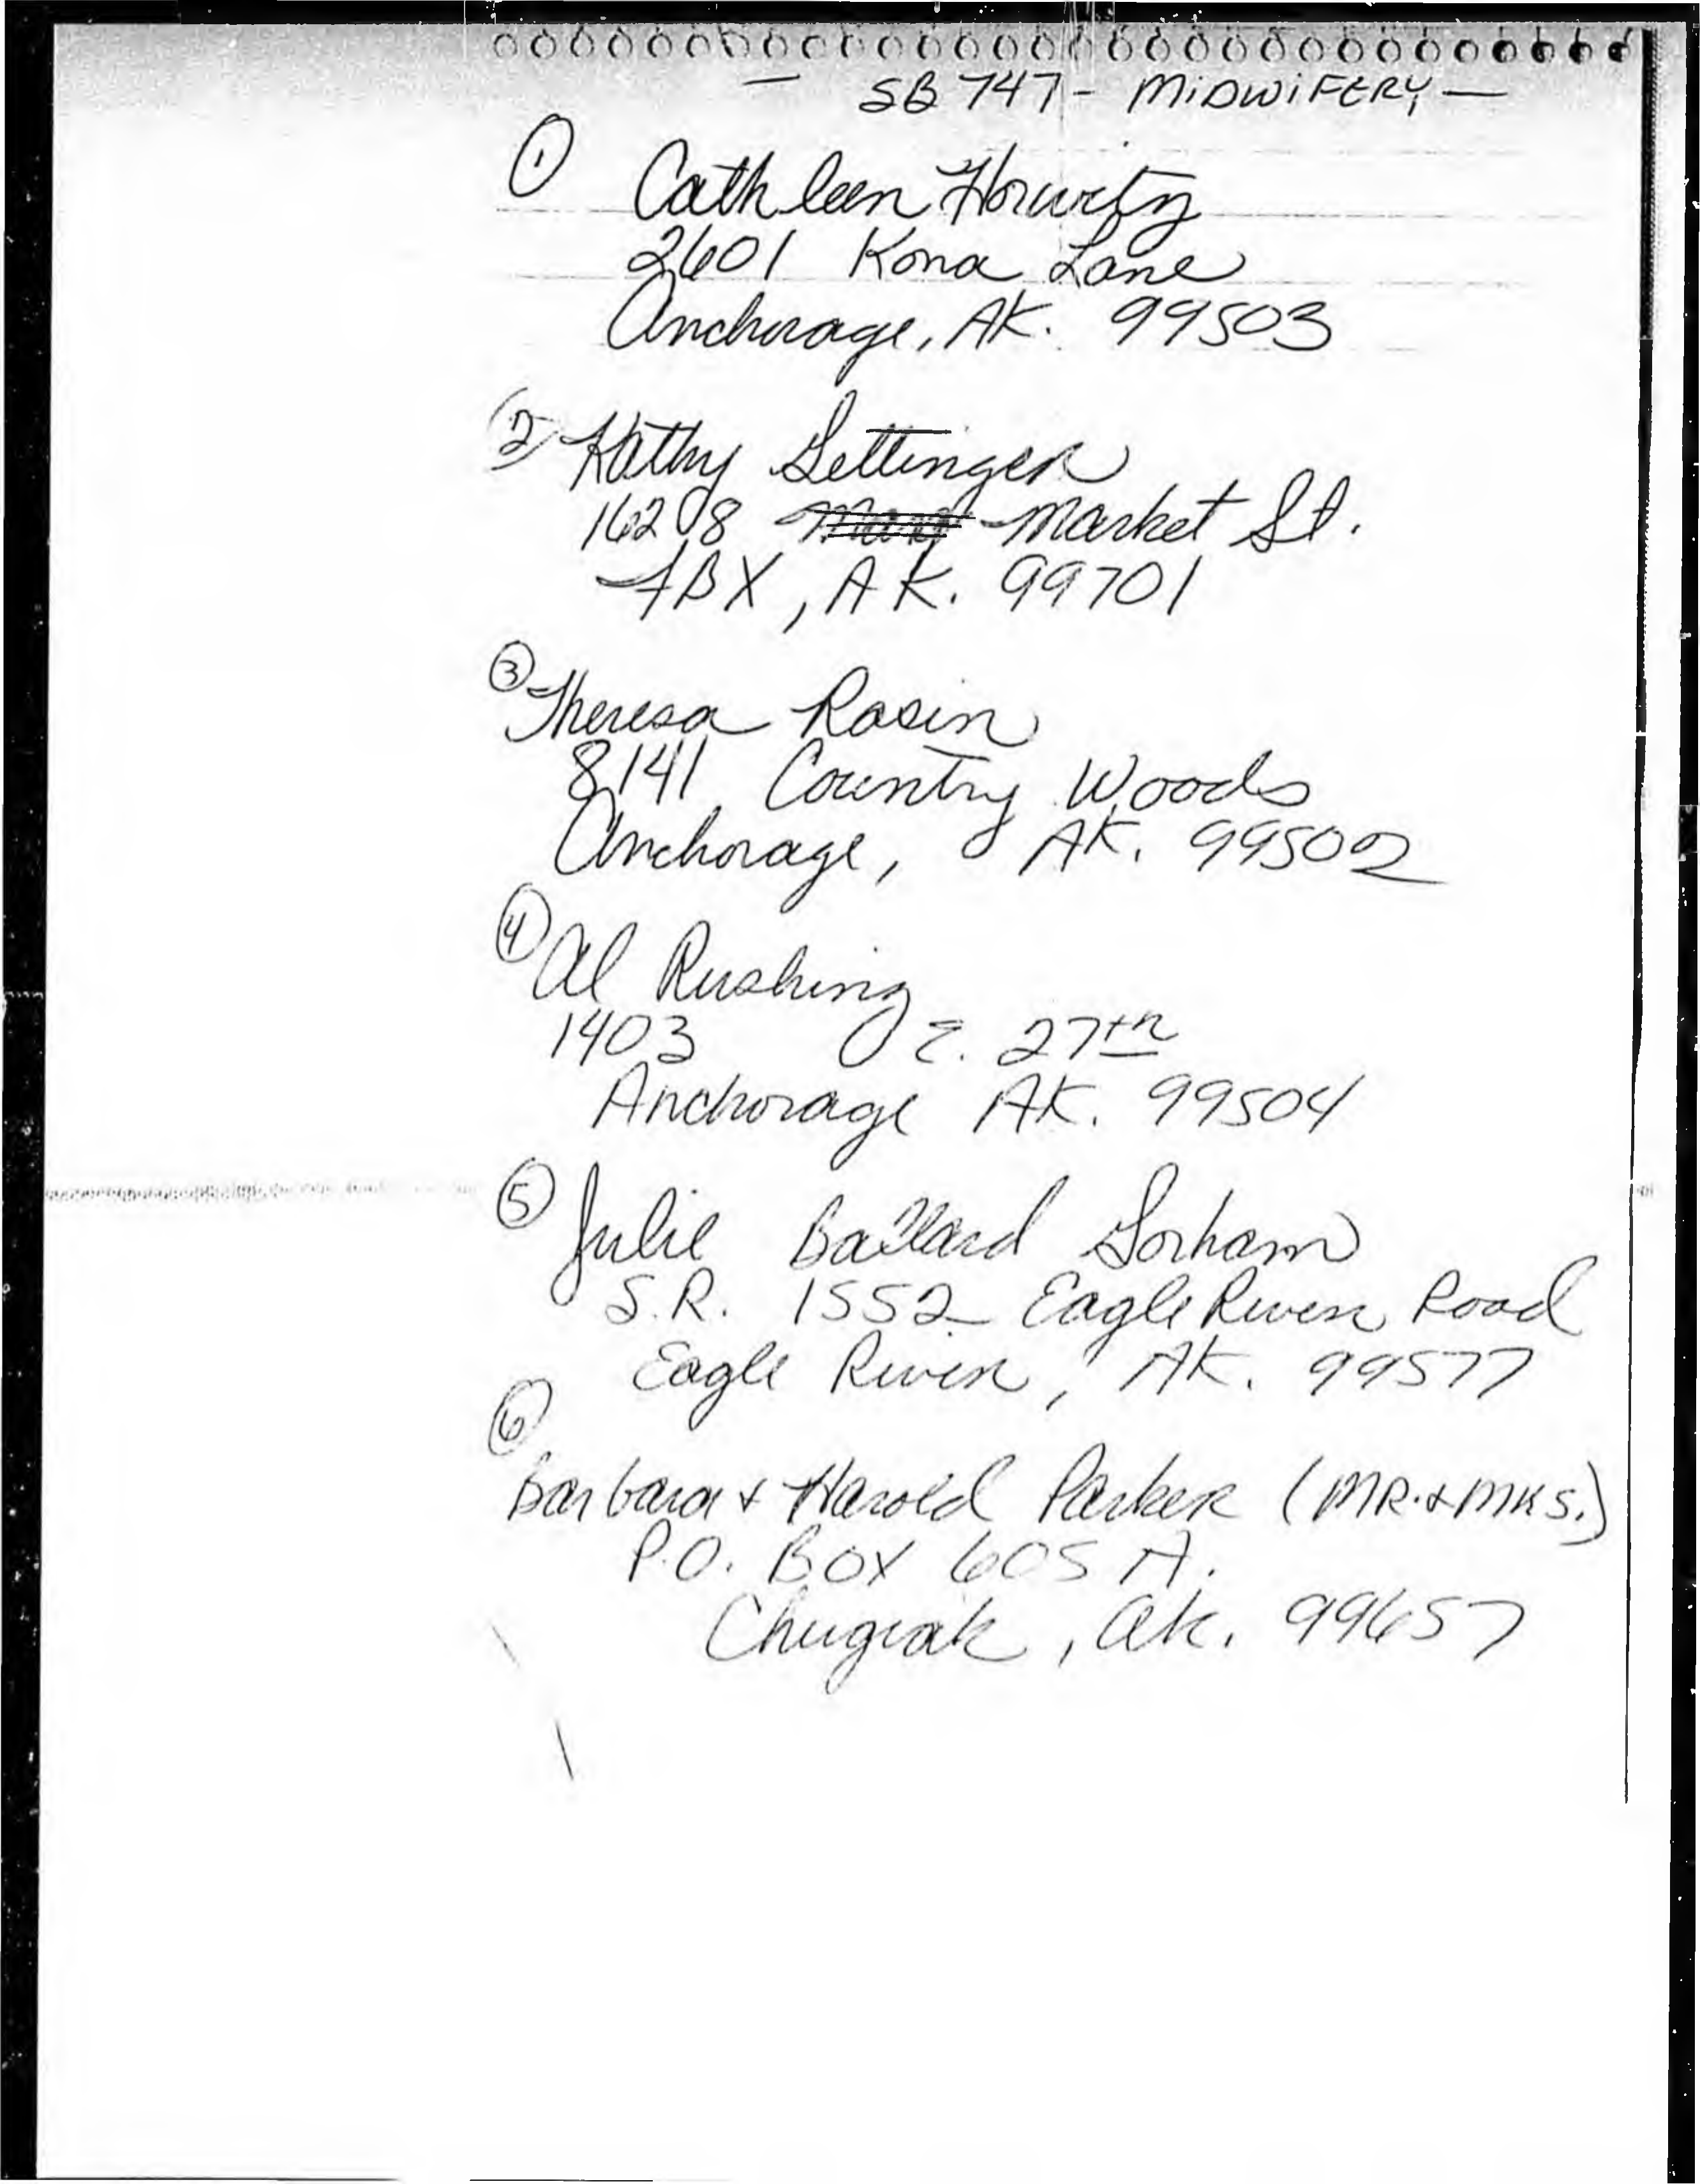 — SB 747 - MIDWIFERY —
① Cathleen Horwitz
2601 Kona Lane
Anchorage, AK. 99503
② Kathy Gettinger
16208 Market St.
FBX, AK. 99701
③ Theresa Rosin
8141 Country Woods
Anchorage, AK. 99502
④ Al Rushing
1403 E. 27th
Anchorage AK. 99504
⑤ Julie Ballard Gorham
S.R. 1552 Eagle River Road
Eagle River, AK. 99577
⑥
Barbara & Harold Parker (MR. & MRS.)
P.O. BOX 605 A.
Chugiak, Ak. 99657